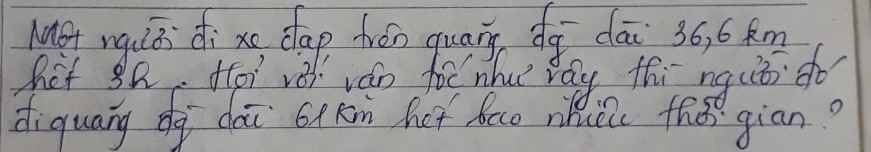 Một người đi xe đạp trên quãng đg dài 36,6 km
hết 3h. Hỏi với vận tốc như vậy thì người đó
đi quãng đg dài 61 km hết bao nhiêu thời gian?